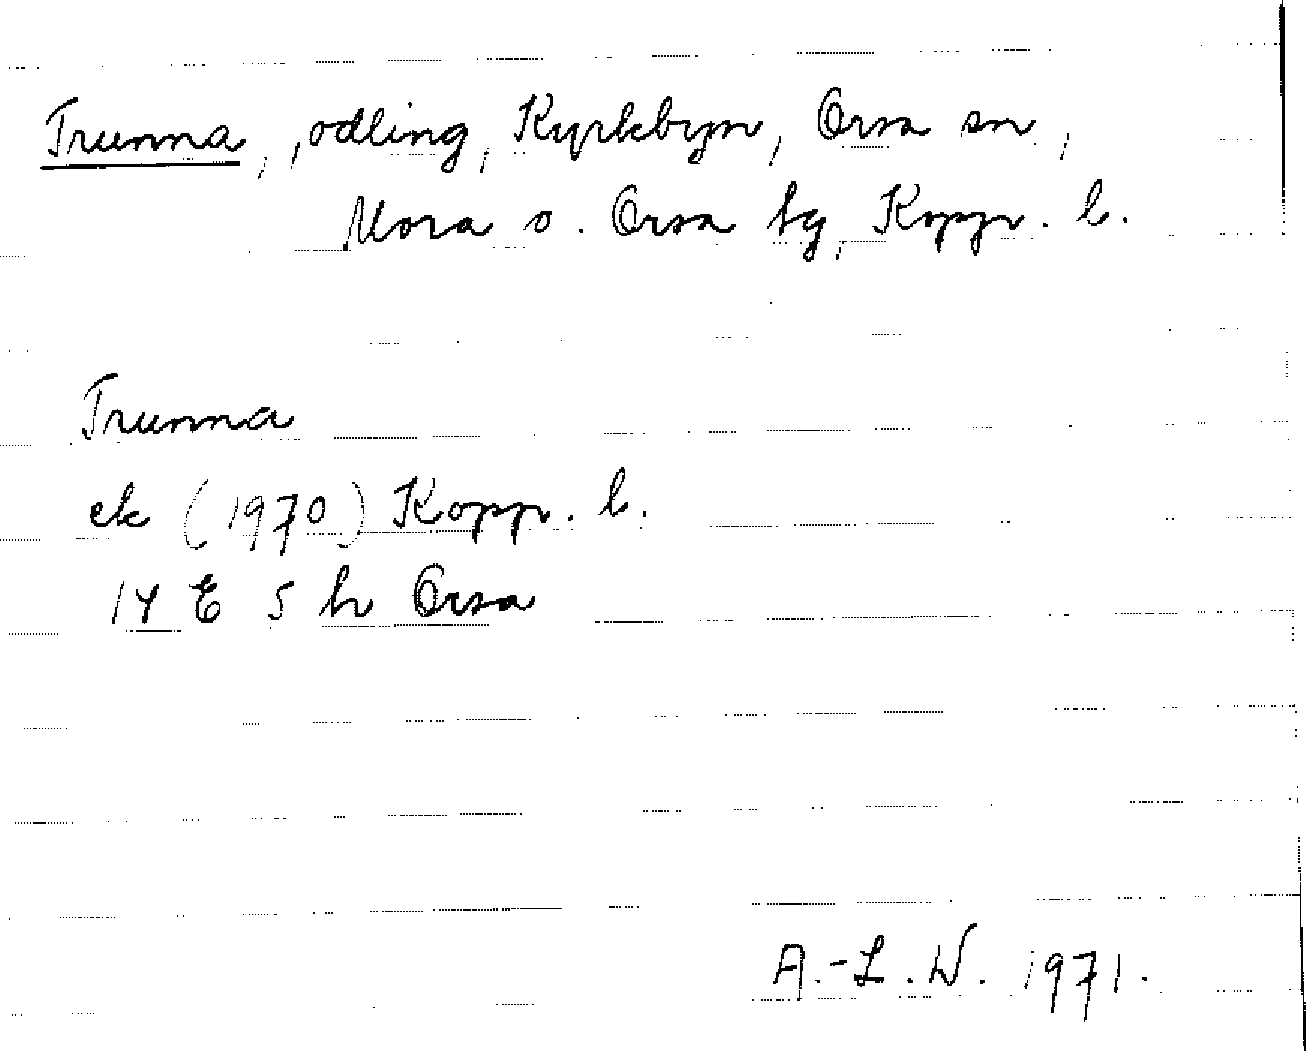 Trunna, odling, Kyrkbyn, Orsa sn,
Mora o. Orsa tg, Kopp. l.
Trunna
ek (1970) Kopp. l.
14 E 5 h Orsa
A.-L.W. 1971.